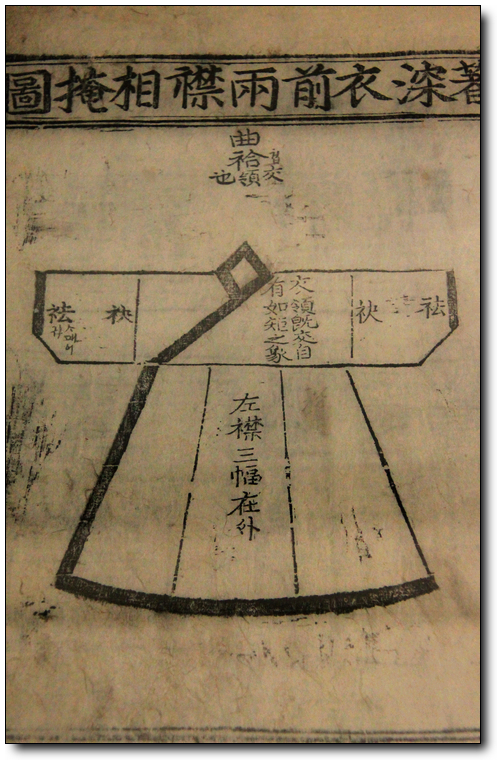 著深衣前兩襟相掩圖
曲袷
交領也
袪
袂
交領既交自
有如矩之象
袂
袪
左襟三幅在外